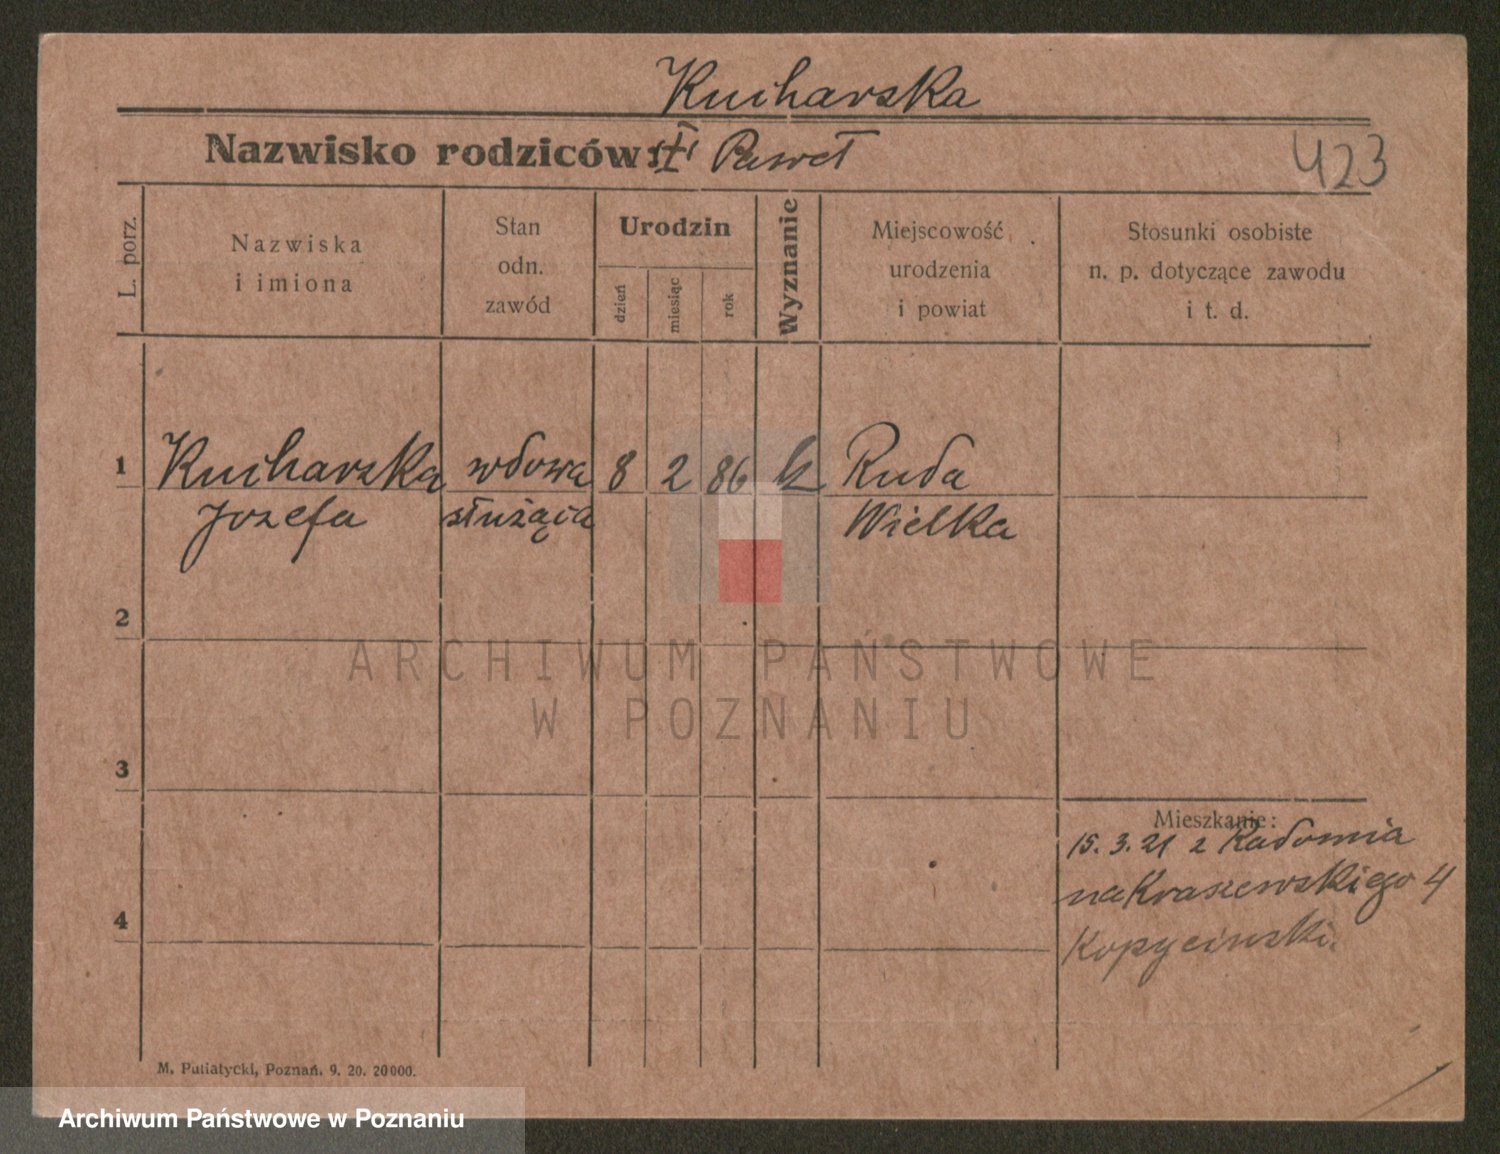 Kucharska
Nazwisko rodziców: Paweł
423
L. porz.
Nazwiska
i imiona
Stan
odn.
zawód
Urodzin
dzień
miesiąc
rok
Wyznanie
Miejscowość
urodzenia
i powiat
Stosunki osobiste
n. p. dotyczące zawodu
i t. d.
1 Kucharska wdowa 8 2 86 k Ruda
Jozefa służąca Wielka
2
ARCHIWUM PAŃSTWOWE
W POZNANIU
3
Mieszkanie:
15. 3. 21 z Radomia
na Kraszewskiego 4
4
Kopyciński.
M. Putiatycki, Poznań. 9. 20. 20000.
Archiwum Państwowe w Poznaniu